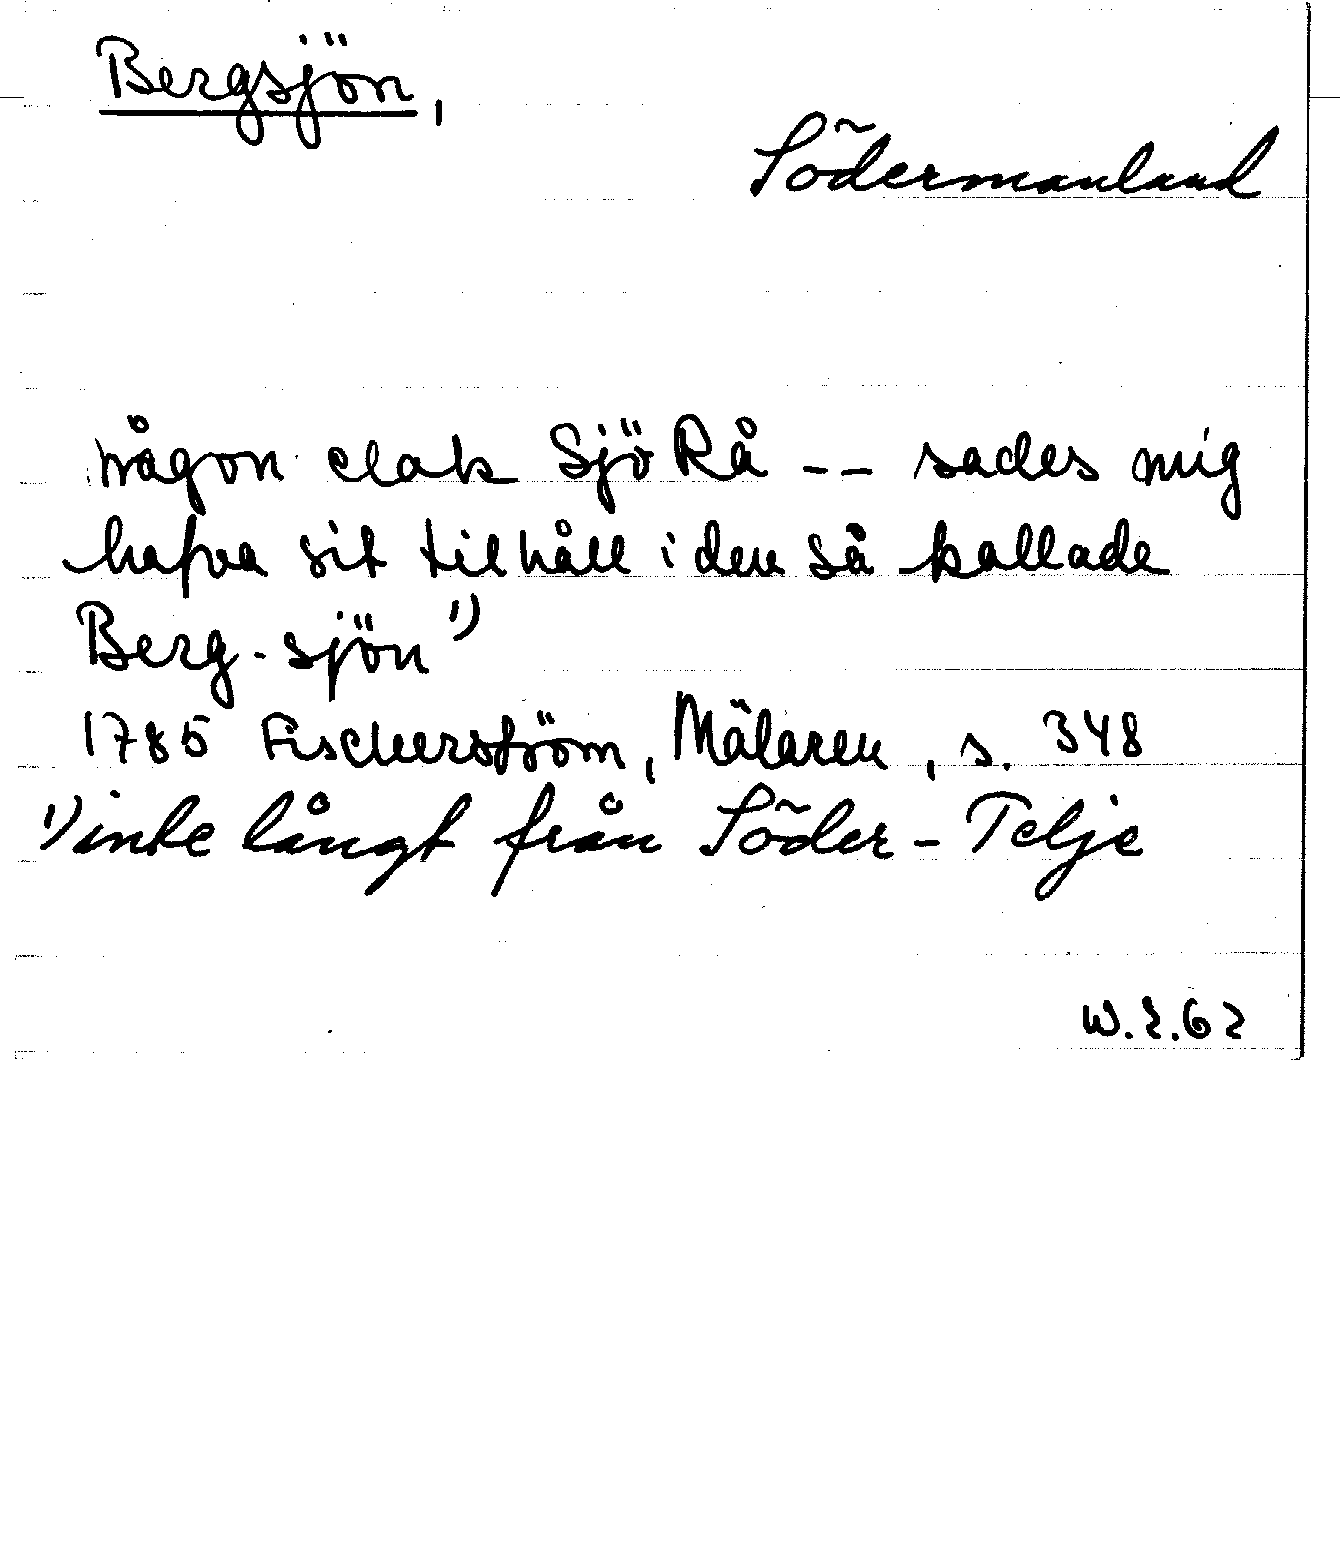 Bergsjön,
Södermanland
någon elak Sjö Rå -- sades mig
hafva sit tilhåll i den så kallade
Berg-sjön 1)
1785 Fischerström, Mälaren, s. 348
1) inte långt från Söder-Telje
W.Z.62